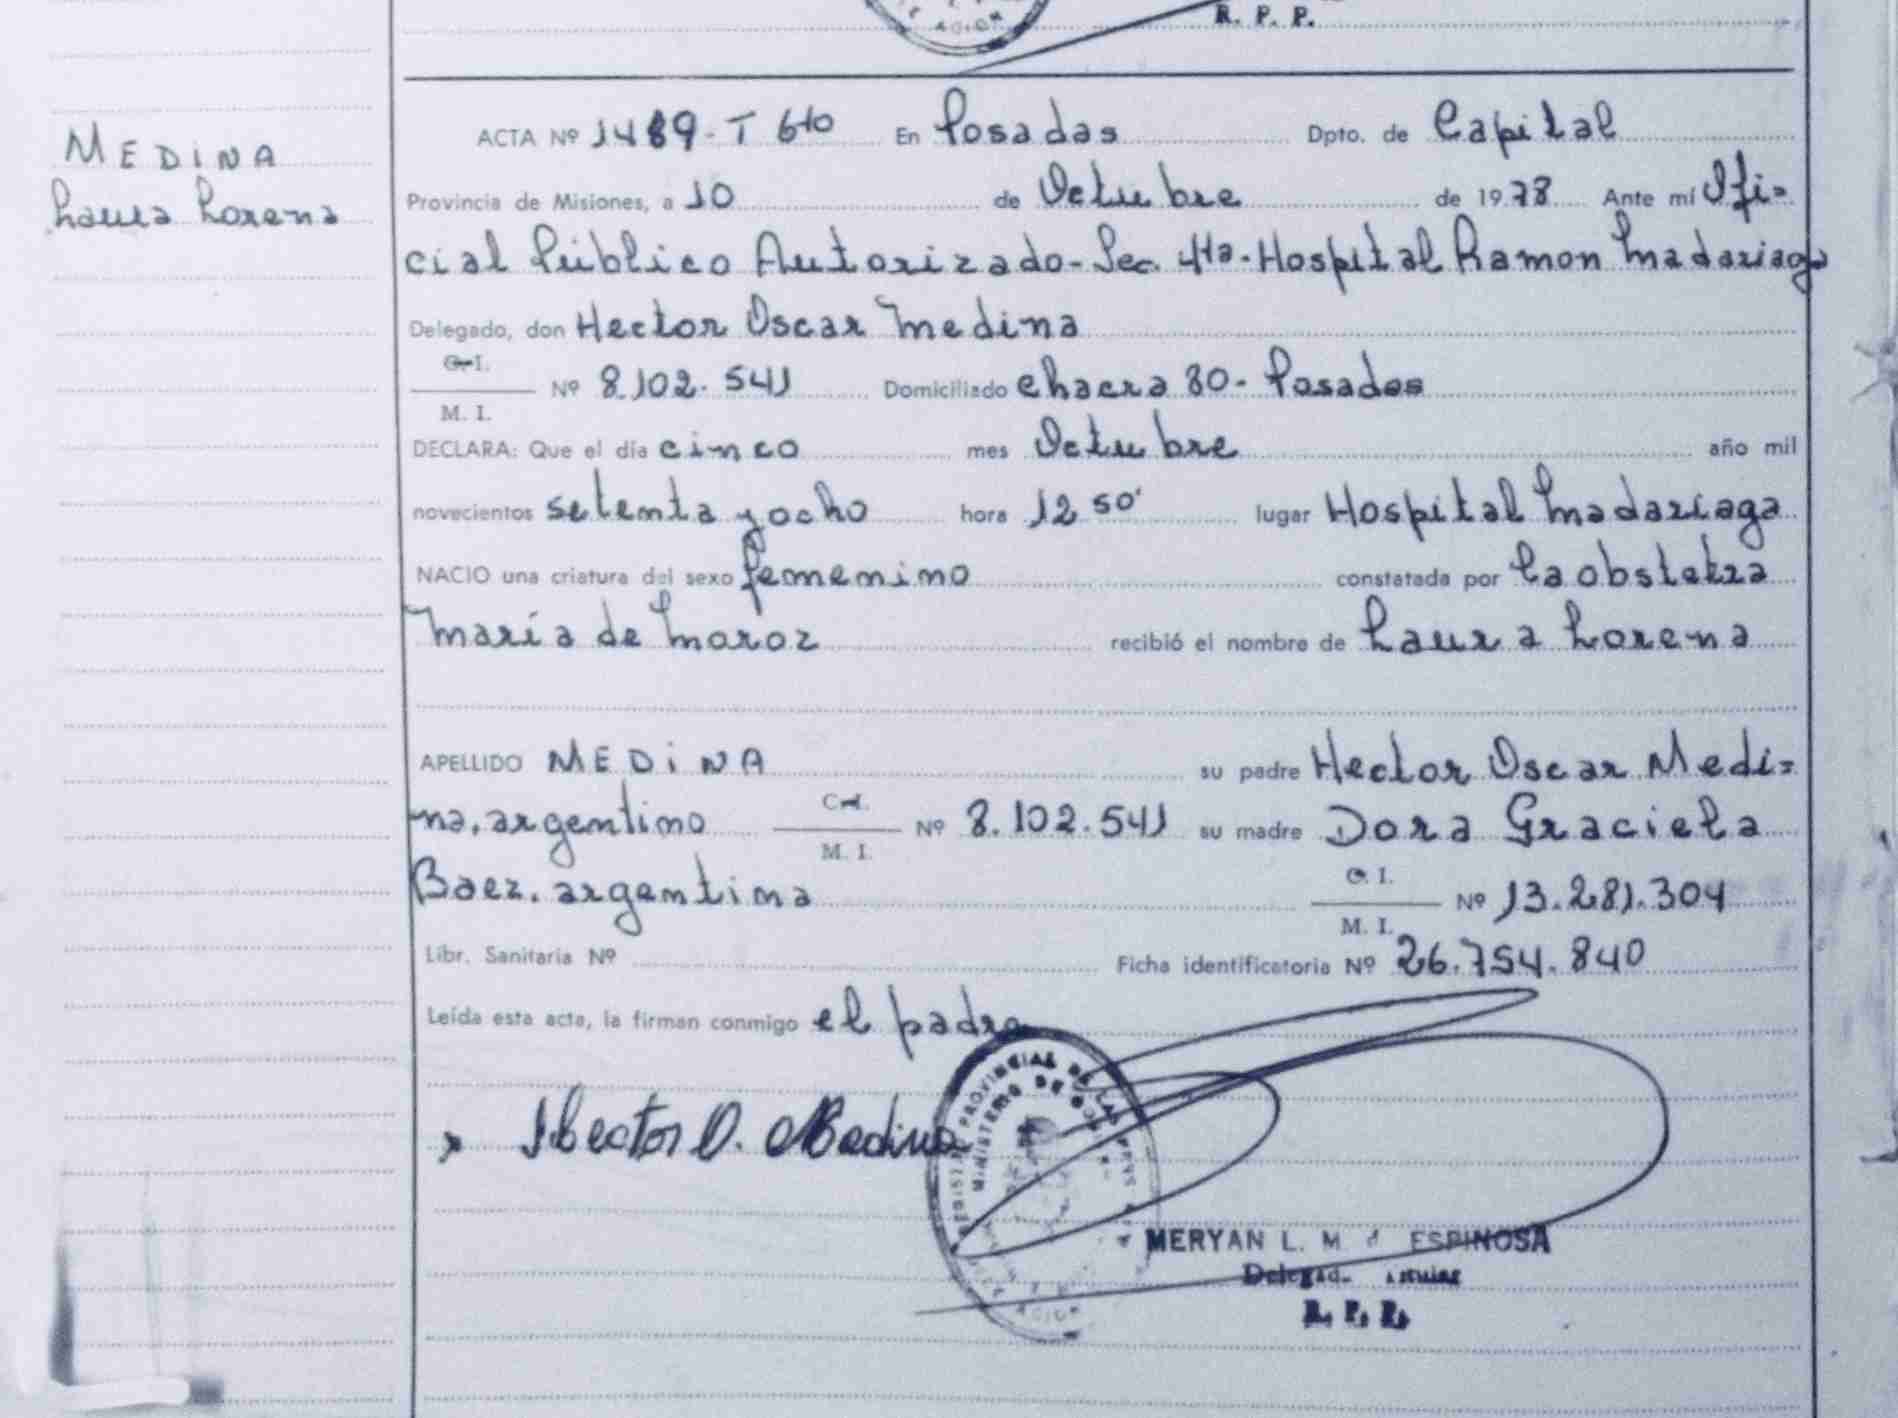 R. P. P.
MEDINA
Laura Lorena
ACTA Nº 1489-T 6to En Posadas Dpto. de Capital
Provincia de Misiones, a 10 de Octubre de 1978 Ante mí Ofi=
cial Público Autorizado-Sec. 4ta-Hospital Ramon Madariaga
Delegado, don Hector Oscar Medina
C.I.
Nº 8.102.541 Domiciliado Chacra 80- Posadas
M. I.
DECLARA: Que el día cinco mes Octubre año mil
novecientos setenta y ocho hora 12 50' lugar Hospital Madariaga
NACIO una criatura del sexo femenino constatada por la obstetra
María de Moroz recibió el nombre de Laura Lorena
APELLIDO MEDINA su padre Hector Oscar Medi=
na, argentino C.I. M. I. Nº 8.102.541 su madre Dora Graciela
Baez, argentina C. I. M. I. Nº 13.281.304
Libr. Sanitaria Nº Ficha identificatoria Nº 26.754.840
Leída esta acta, la firman conmigo el padre
Hector O. Medina
REGISTRO PROVINCIAL DE LAS PERSONAS
MINISTERIO DE
MERYAN L. M ESPINOSA
R. P. P.